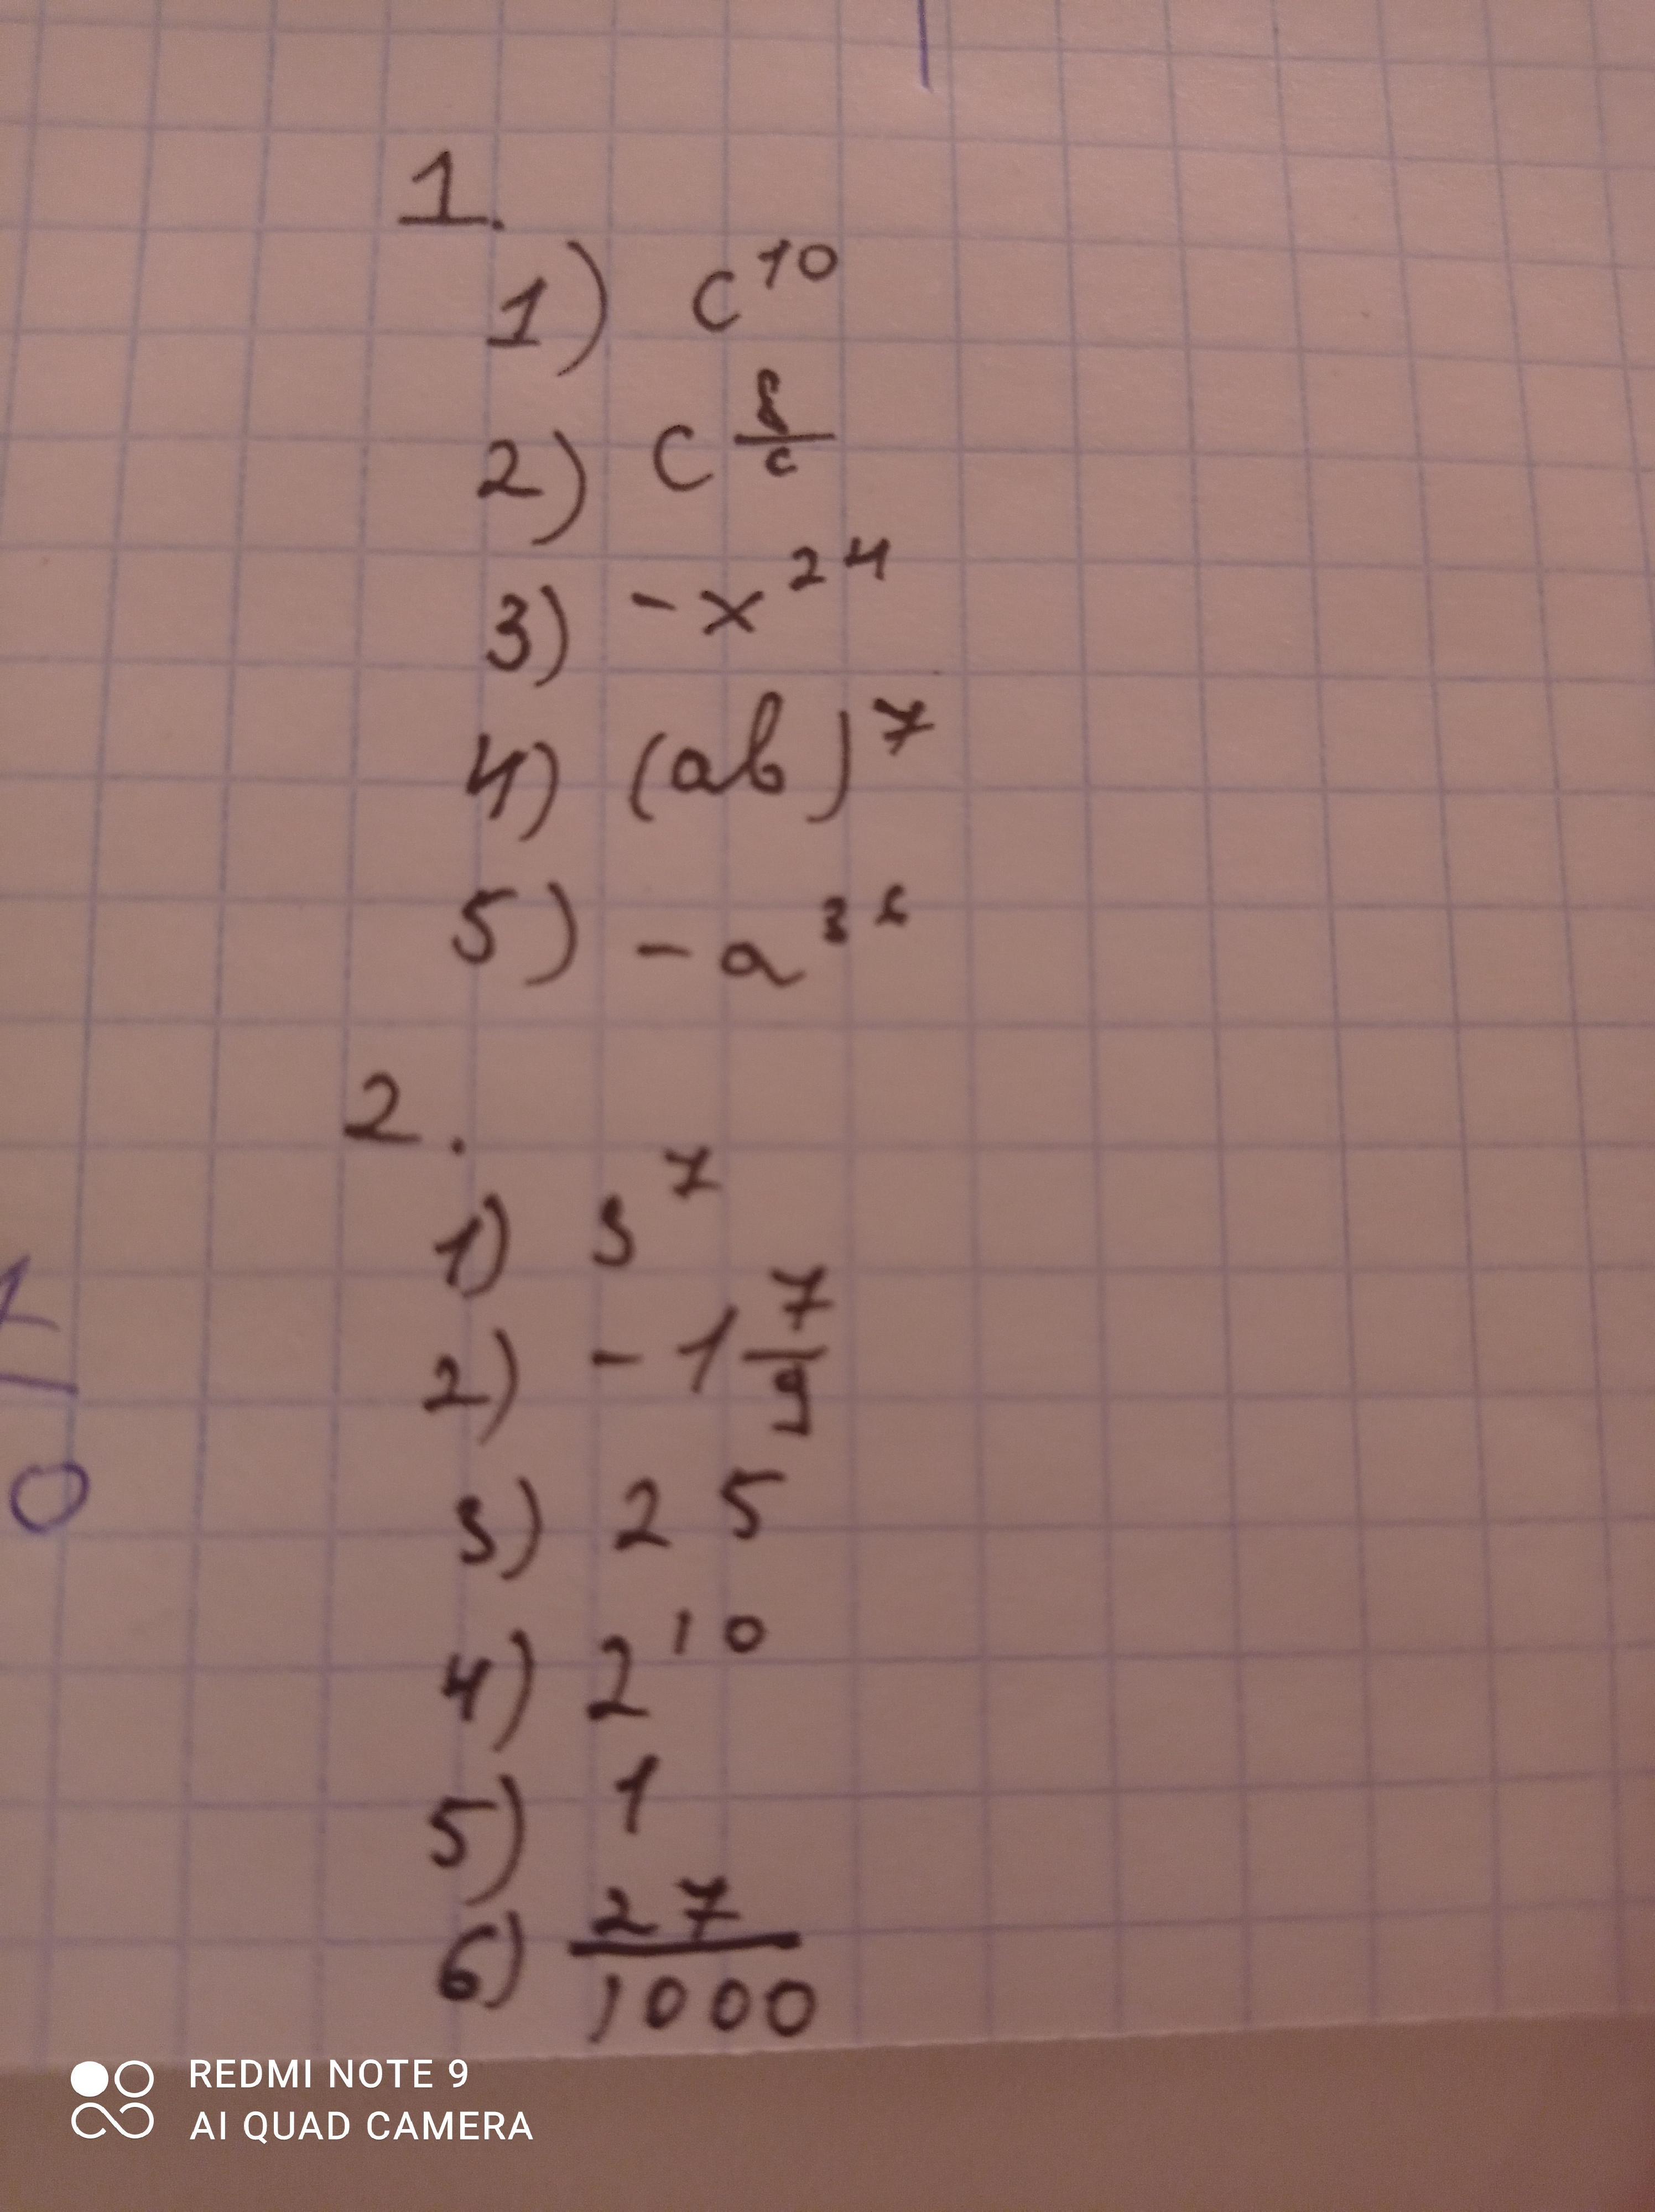 1.
1) c^10
2) c^8/c
3) -x^24
4) (ab)^7
5) -a^3
2.
1) 3^7
2) -1 7/9
3) 25
4) 2^10
5) 1
6) 27/1000
REDMI NOTE 9
AI QUAD CAMERA